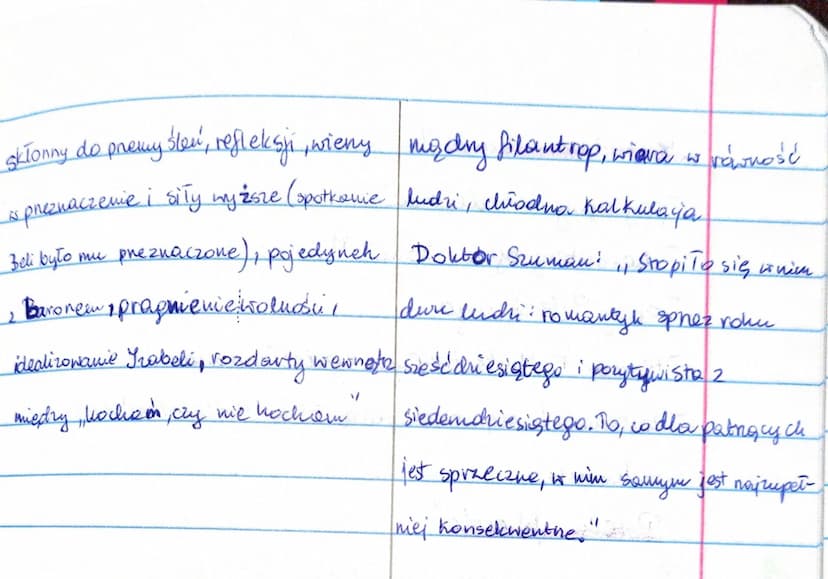 skłonny do przemyśleń, refleksji, wierzy
w przeznaczenie i siły wyższe (spotkanie
Beli było mu przeznaczone), pojedynek
z Baronem, pragnienie wolności,
idealizowanie Izabeli, rozdarty wewnętrz
między „kocham, czy nie kocham”
mądry filantrop, wiara w równość
ludzi, chłodna kalkulacja
Doktor Szuman: „Stopiło się w nim
dwu ludzi: romantyk sprzez roku
sześćdziesiątego i pozytywista z
siedemdziesiątego. To, co dla patrzących
jest sprzeczne, w nim samym jest najzupeł-
niej konsekwentne."